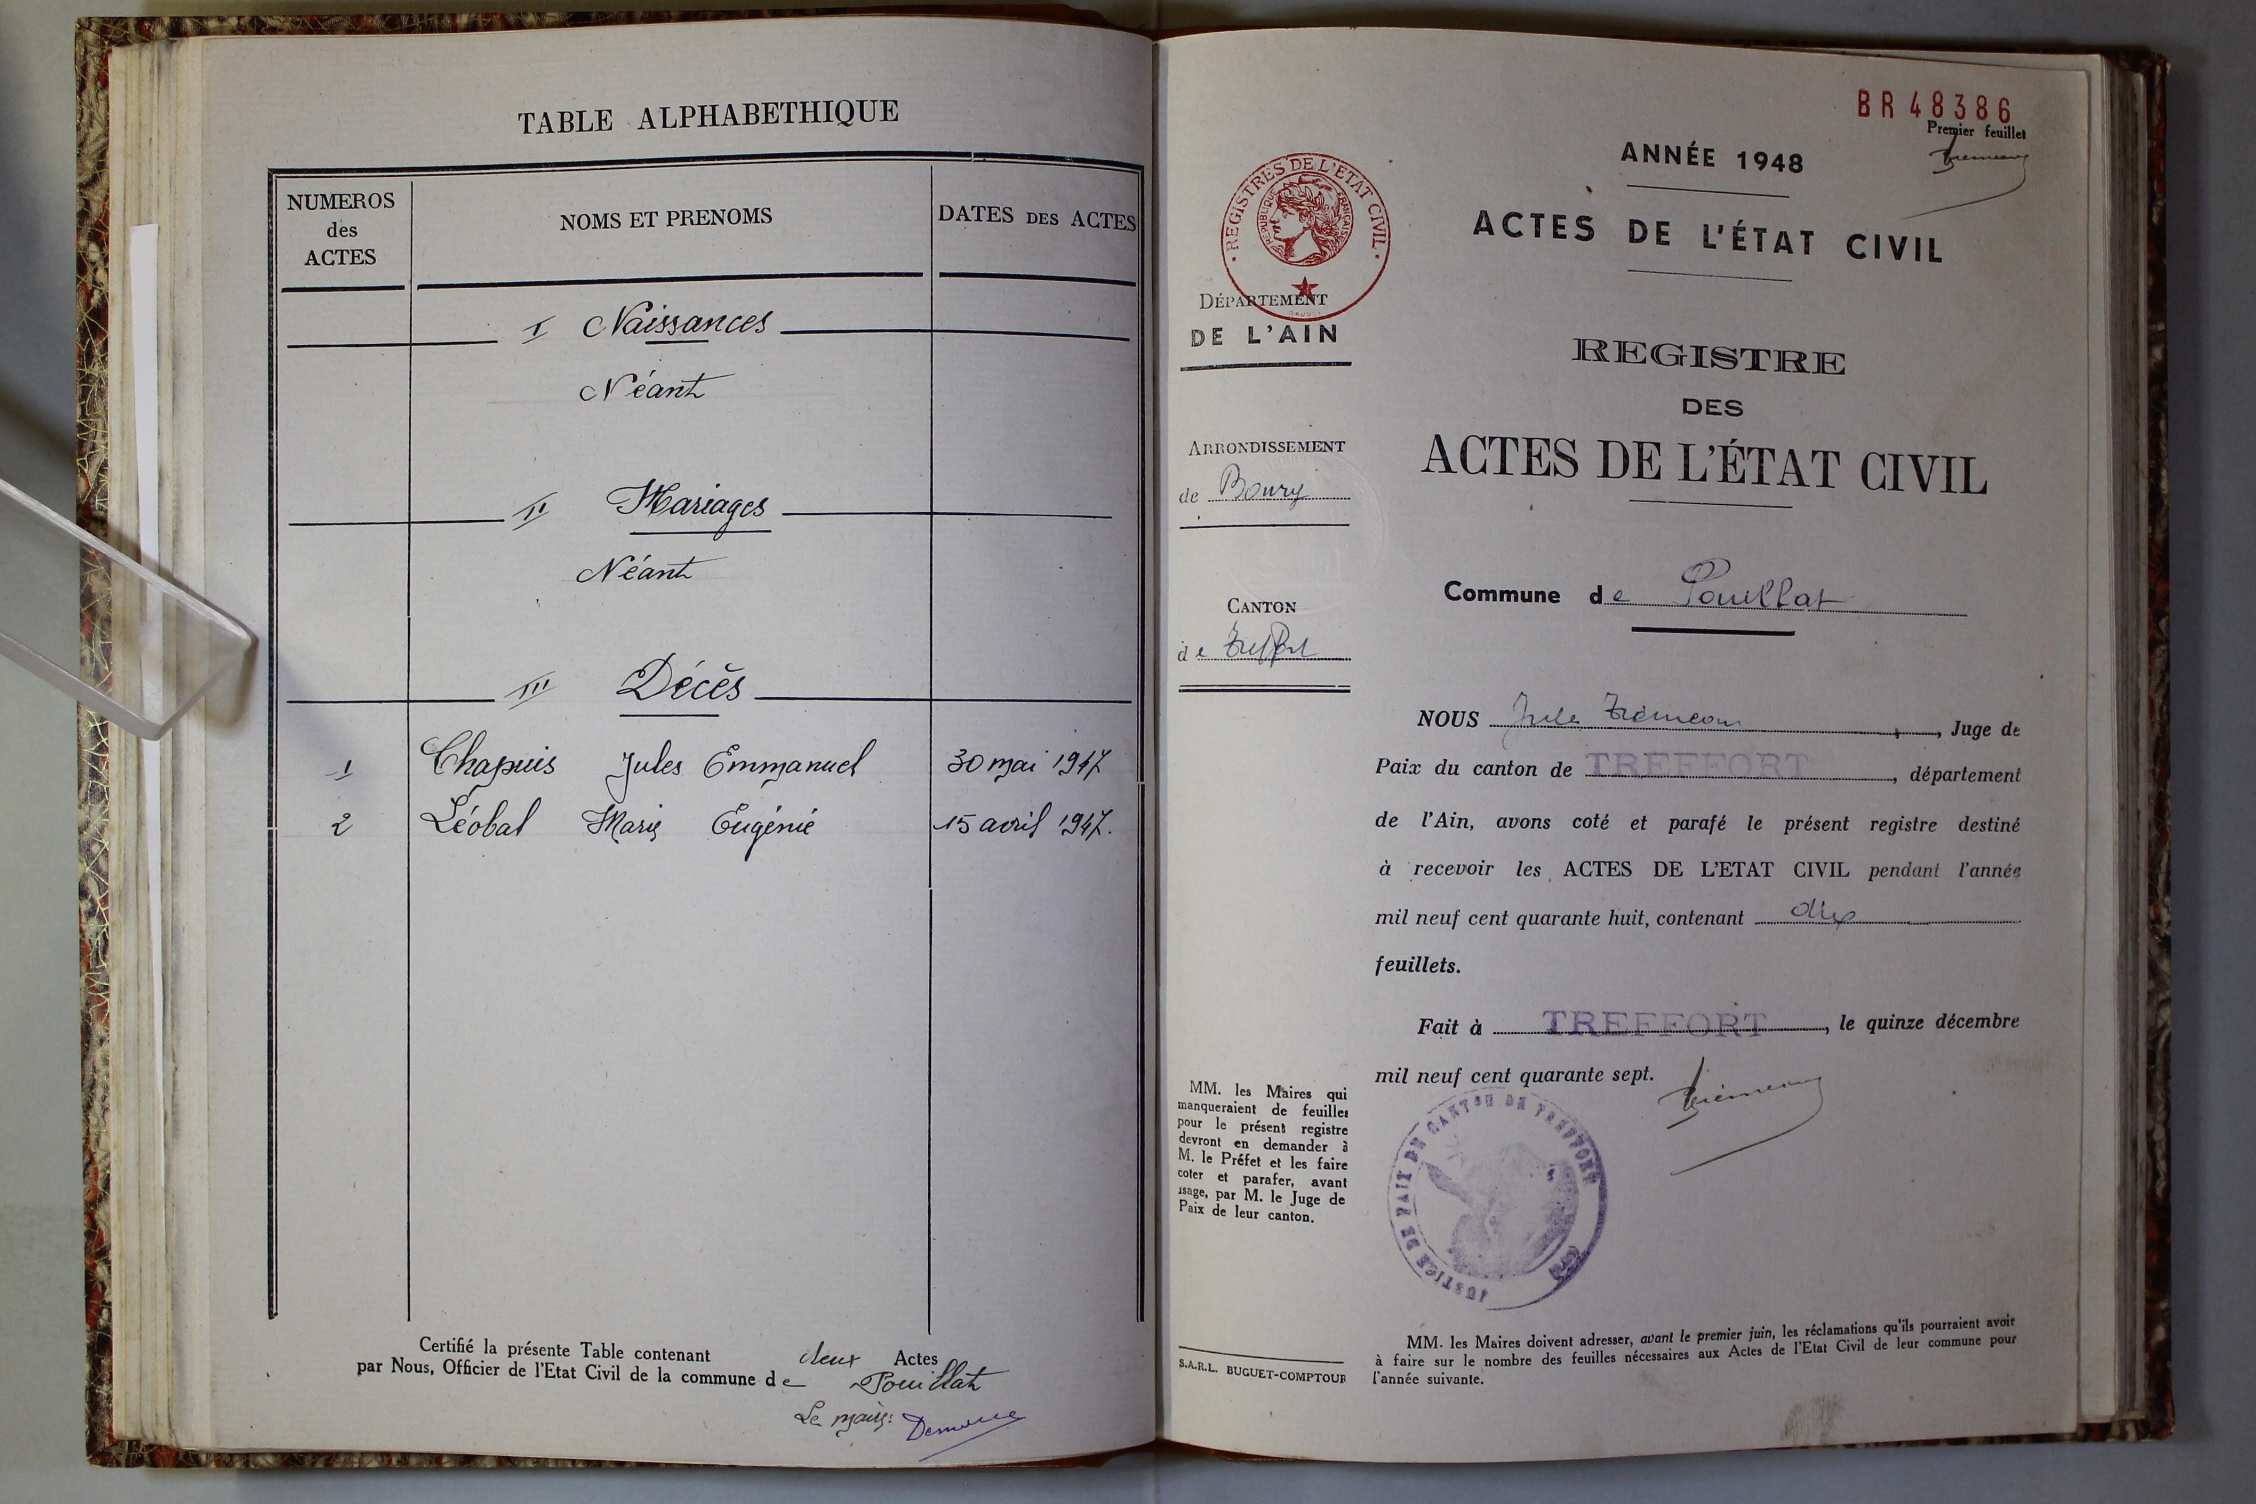 TABLE ALPHABETHIQUE
NUMEROS
des
ACTES
NOMS ET PRENOMS
DATES DES ACTES
I Naissances
Néant
II Mariages
Néant
III Décès
1 Chapuis Jules Emmanuel 30 mai 1947
2 Léobal Marie Eugénie 15 avril 1947.
Certifié la présente Table contenant deux Actes
par Nous, Officier de l'Etat Civil de la commune de Pouillat
Le maire:
BR 48386
Premier feuillet
ANNÉE 1948
ACTES DE L'ÉTAT CIVIL
· REGISTRES DE L'ETAT CIVIL ·
REPUBLIQUE FRANÇAISE
DÉPARTEMENT
DE L'AIN
ARRONDISSEMENT
de Bourg
CANTON
de Treffort
REGISTRE
DES
ACTES DE L'ÉTAT CIVIL
Commune de Pouillat
NOUS Jules , Juge de
Paix du canton de TREFFORT, département
de l'Ain, avons coté et parafé le présent registre destiné
à recevoir les ACTES DE L'ETAT CIVIL pendant l'année
mil neuf cent quarante huit, contenant dix
feuillets.
Fait à TREFFORT, le quinze décembre
mil neuf cent quarante sept.
JUSTICE DE PAIX DE CANTON DE TREFFORT
MM. les Maires qui
manqueraient de feuilles
pour le présent registre
devront en demander à
M. le Préfet et les faire
coter et parafer, avant
usage, par M. le Juge de
Paix de leur canton.
S.A.R.L. BUGUET-COMPTOUR
MM. les Maires doivent adresser, avant le premier juin, les réclamations qu'ils pourraient avoir
à faire sur le nombre des feuilles nécessaires aux Actes de l'Etat Civil de leur commune pour
l'année suivante.